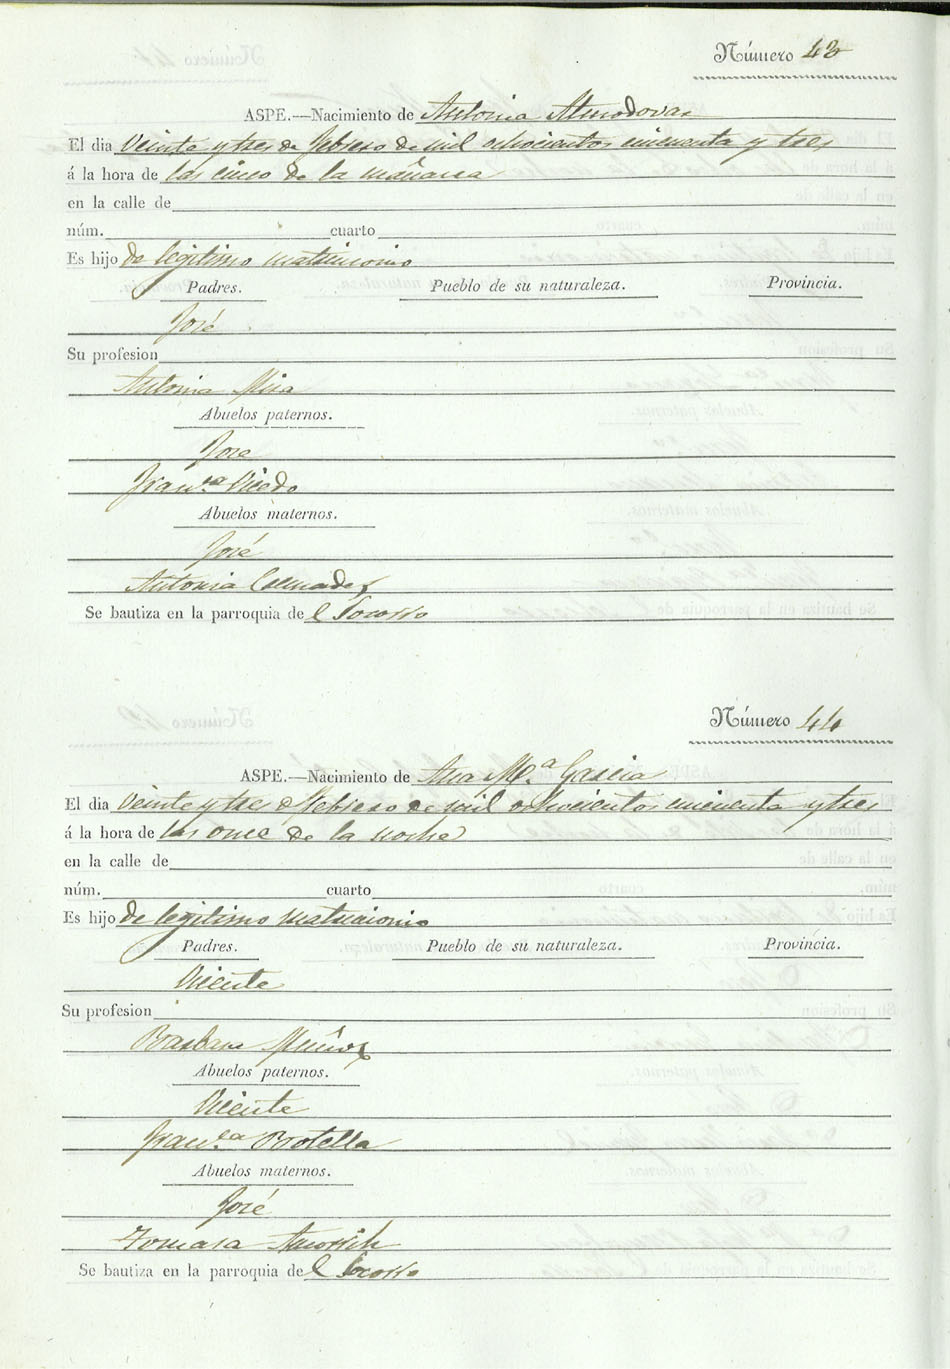 Número 43
ASPE.—Nacimiento de Antonia Almodovar
El dia veinte y tres de febrero de mil ochocientos cincuenta y tres
á la hora de las cinco de la mañana
en la calle de
núm. cuarto
Es hijo de legitimo matrimonio
Padres. Pueblo de su naturaleza. Provincia.
José
Su profesion
Antonia Mira
Abuelos paternos.
Jose
Franca Vicedo
Abuelos maternos.
José
Antonia
Se bautiza en la parroquia de el Socorro
Número 44
ASPE.—Nacimiento de Ana M.a Garcia
El dia veinte y tres de febrero de mil ochocientos cincuenta y tres
á la hora de las once de la noche
en la calle de
núm. cuarto
Es hijo de legitimo matrimonio
Padres. Pueblo de su naturaleza. Provincia.
Vicente
Su profesion
Barbara Muñoz
Abuelos paternos.
Vicente
Fran.ca Botella
Abuelos maternos.
José
Tomasa
Se bautiza en la parroquia de el Socorro